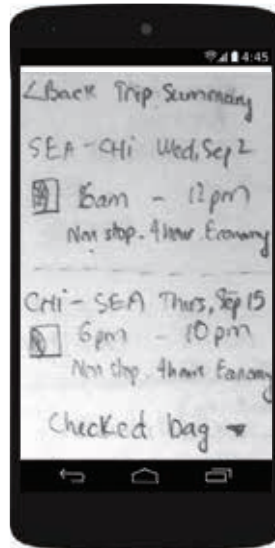 4:45
<Back Trip Summary
SEA - CHi Wed, Sep 2
8am - 12pm
Non stop. 4 hour. Economy
CHi - SEA Thurs, Sep 15
6pm - 10pm
Non stop. 4 hour Economy
Checked bag